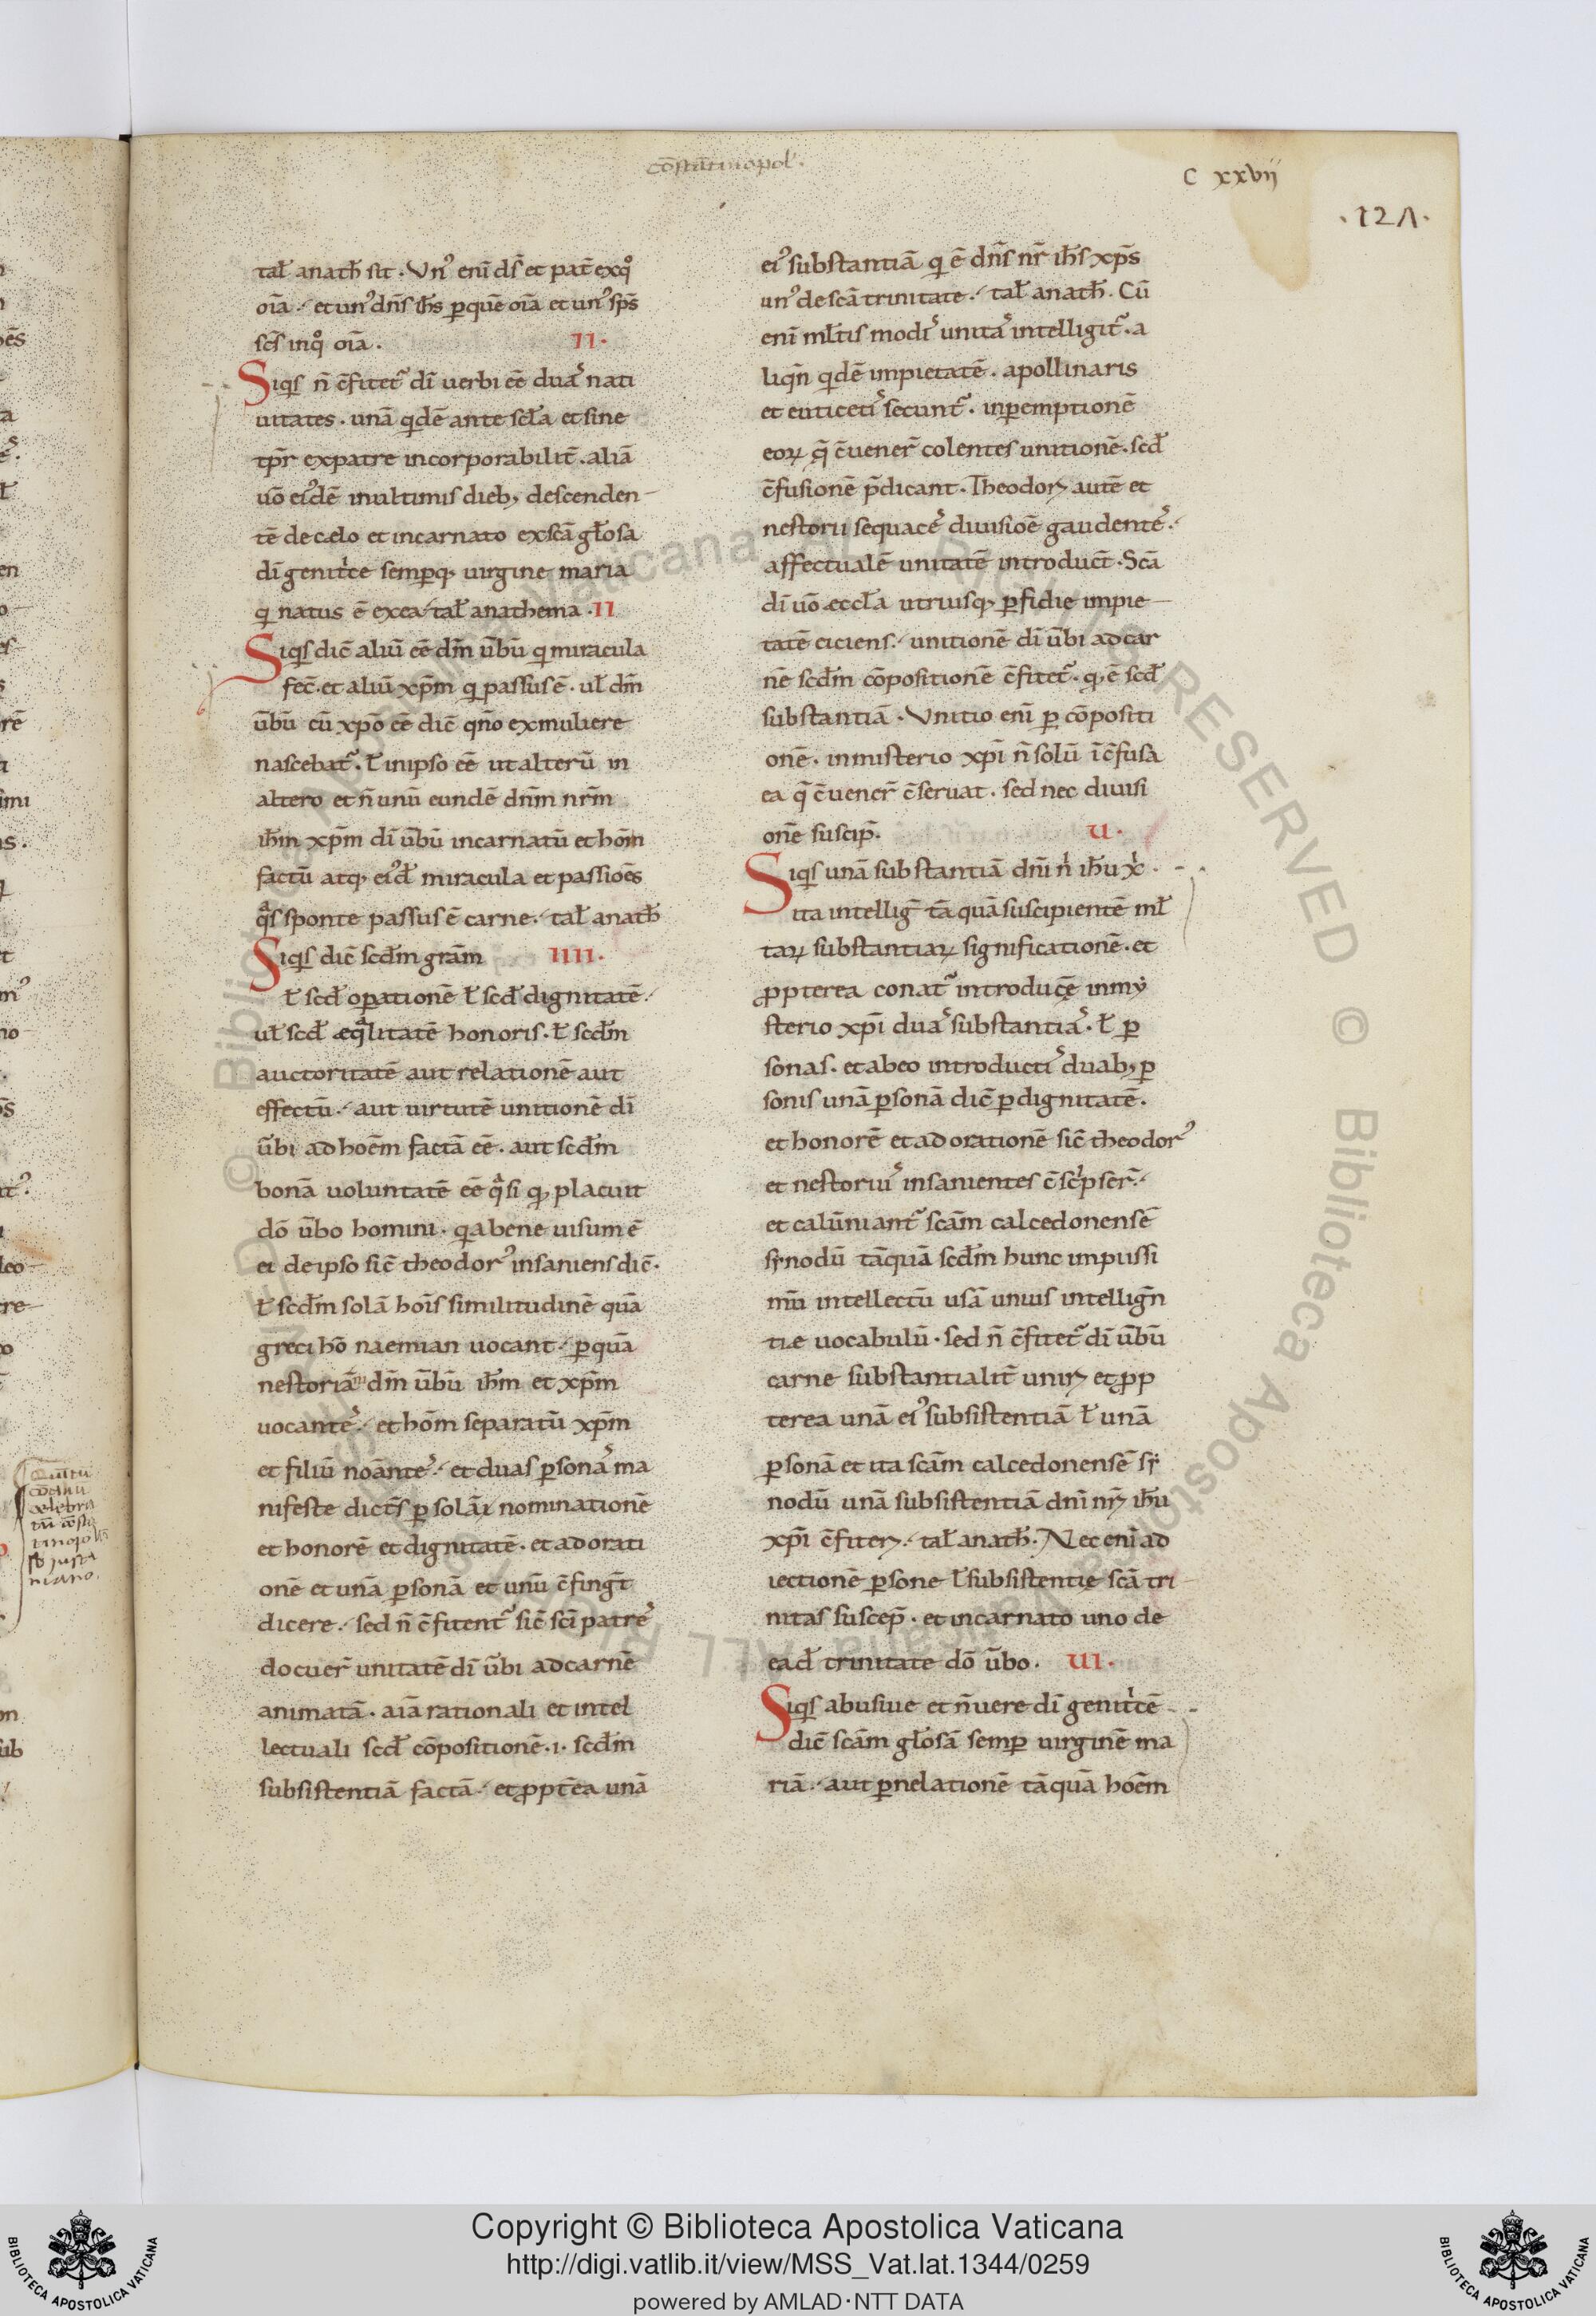 cōstātinopol̄.
C xxvij
.121.
tal̄ anath̄ sit. Vnꝰ eni᷒ ds̄ et pat̄ ex qͦ
oīa. et unꝰ dn̄s ih̄s ꝑ quē oīa et unꝰ sp̄s
sc̄s in qͦ oīa. II.
Siqͥs n̄ c̄fitet᷑ dī uerbi eē duaˢ nati
uitates. unā qͥdē ante scl̄a et sine
tp̄r ex patre incorporabilit̄. aliā
uō eiꝰdē in ultimis dieb; descenden
tē de cęlo et incarnato ex scā gl̄osa
dī genitͥce semꝑq; uirgine maria
qͥ natus ē ex ea tal̄ anathema. II
Siqͥs dic̄ aliū eē dm̄ ūbū qͥ miracula
fec̄. et aliū xp̄m qͥ passus ē. ul̄ dm̄
ūbū cū xp̄o eē dic̄ qn̄o ex muliere
nascebat᷑. l̄ in ipso eē ut alterū in
altero et n̄ unū eundē dn̄m nr̄m
ih̄m xp̄m dī ūbū incarnatū et hōm
factū atq; eiꝰd̄ miracula et passiōes
qͣs sponte passus ē carne. tal̄ anath̄
Siqͥs dic̄ scd̄m gr̄am IIII.
l̄ scd̄ oꝑationē l̄ scd̄ dignitatē.
ul̄ scd̄ æqͣlitatē honoris. l̄ scd̄m
auctoritatē aut relationē aut
effectū. aut uirtutē unitionē dī
ūbi ad hoēm factā eē. aut scd̄m
bonā uoluntatē eē qͣsi qꝫ placuit
dō ūbo homini. qͥa bene uisum ē
ei de ipso sic̄ theodorꝰ insaniens dic̄.
l̄ scd̄m solā hoīs similitudinē quā
greci hō naemian uocant. ꝑ quā
nestoriā ni dm̄ ūbū ih̄m et xp̄m
uocanteˢ. et hōm separatū xp̄m
et filiū noānteˢ. et duas ꝑsonaˢ ma
nifeste dict̄s ꝑ solā nominationē
et honorē et dignitatē. et adorati
onē et unā ꝑsonā et unū c̄finḡt
dicere. sed n̄ c̄fitent᷑ sic̄ sc̄i patreˢ
docuer̄ unitatē dī ūbi ad carnē
animatā. aīa rationali et intel
lectuali scd̄ cōpositionē .i. scd̄m
subsistentiā factā. et ꝓpt̄ea unā
eiꝰ substantiā qͥ ē dn̄s nr̄ ih̄s xp̄s
unꝰ de scā trinitate. tal̄ anath̄. Cū
eni᷒ ml̄tis modiˢ unitaˢ intelligit᷑. a
liqn̄ qͥdē impietatē. apollinaris
et euticetiˢ secunt᷑. inꝑemptionē
eoꝝ q̄ c̄uener̄ colentes unitionē. scd̄
c̄fusionē p̄dicant. Theodorꝫ autē et
nestorii sequaceˢ diuisiōe gaudenteˢ.
affectualē unitatē introduc̄t. Scā
dī uō æccl̄a utriusq; ꝑfidię impie
tatē eiciens. unitionē dī ūbi ad car
nē scd̄m cōpositionē c̄fitet᷑. qꝫ ē scd̄
substantiā. Vnitio eni᷒ ꝑ cōpositi
onē. in misterio xp̄i n̄ solū īc̄fusa
ea q̄ c̄uener̄ c̄seruat. sed nec diuisi
onē suscip̄. U.
Siqͥs unā substantiā dn̄i nͥ ih̄u xͥ.
ita intelliḡ tā quā suscipientē ml̄
taꝝ substantiaꝝ significationē. et
ꝓpterea conat᷑ introducē in my
sterio xp̄i duaˢ substantiaˢ. l̄ ꝑ
sonas. et ab eo introductiˢ duab; ꝑ
sonis unā ꝑsonā dic̄ ꝑ dignitatē.
et honorē et adorationē sic̄ theodorꝰ
et nestoriuˢ insanientes c̄scͥpser̄.
et calūniant᷑ scām calcedonensē
synodū tāquā scd̄m hunc impiissi
mū intellectū usā unius intellign̄
tie uocabulū. sed n̄ c̄fitet᷑ dī ūbū
carne substantialit̄ unirꝫ et ꝓp
terea unā eiꝰ subsistentiā l̄ unā
ꝑsonā et ita scām calcedonensē sy
nodū unā subsistentiā dn̄i nr̄ꝫ ih̄u
xp̄i c̄fiterꝫ. tal̄ anath̄. Nec eni᷒ ad
iectionē ꝑsone l̄ subsistentię scā tri
nitas suscep̄. et incarnato uno de
ead̄ trinitate dō ūbo. UI.
Siqͥs abusiue et n̄ uere dī genitͥcē
dic̄ scām gl̄osā semꝑ uirginē ma
riā. aut ꝑ nelationē tāquā hoēm
Copyright © Biblioteca Apostolica Vaticana
http://digi.vatlib.it/view/MSS_Vat.lat.1344/0259
powered by AMLAD·NTT DATA